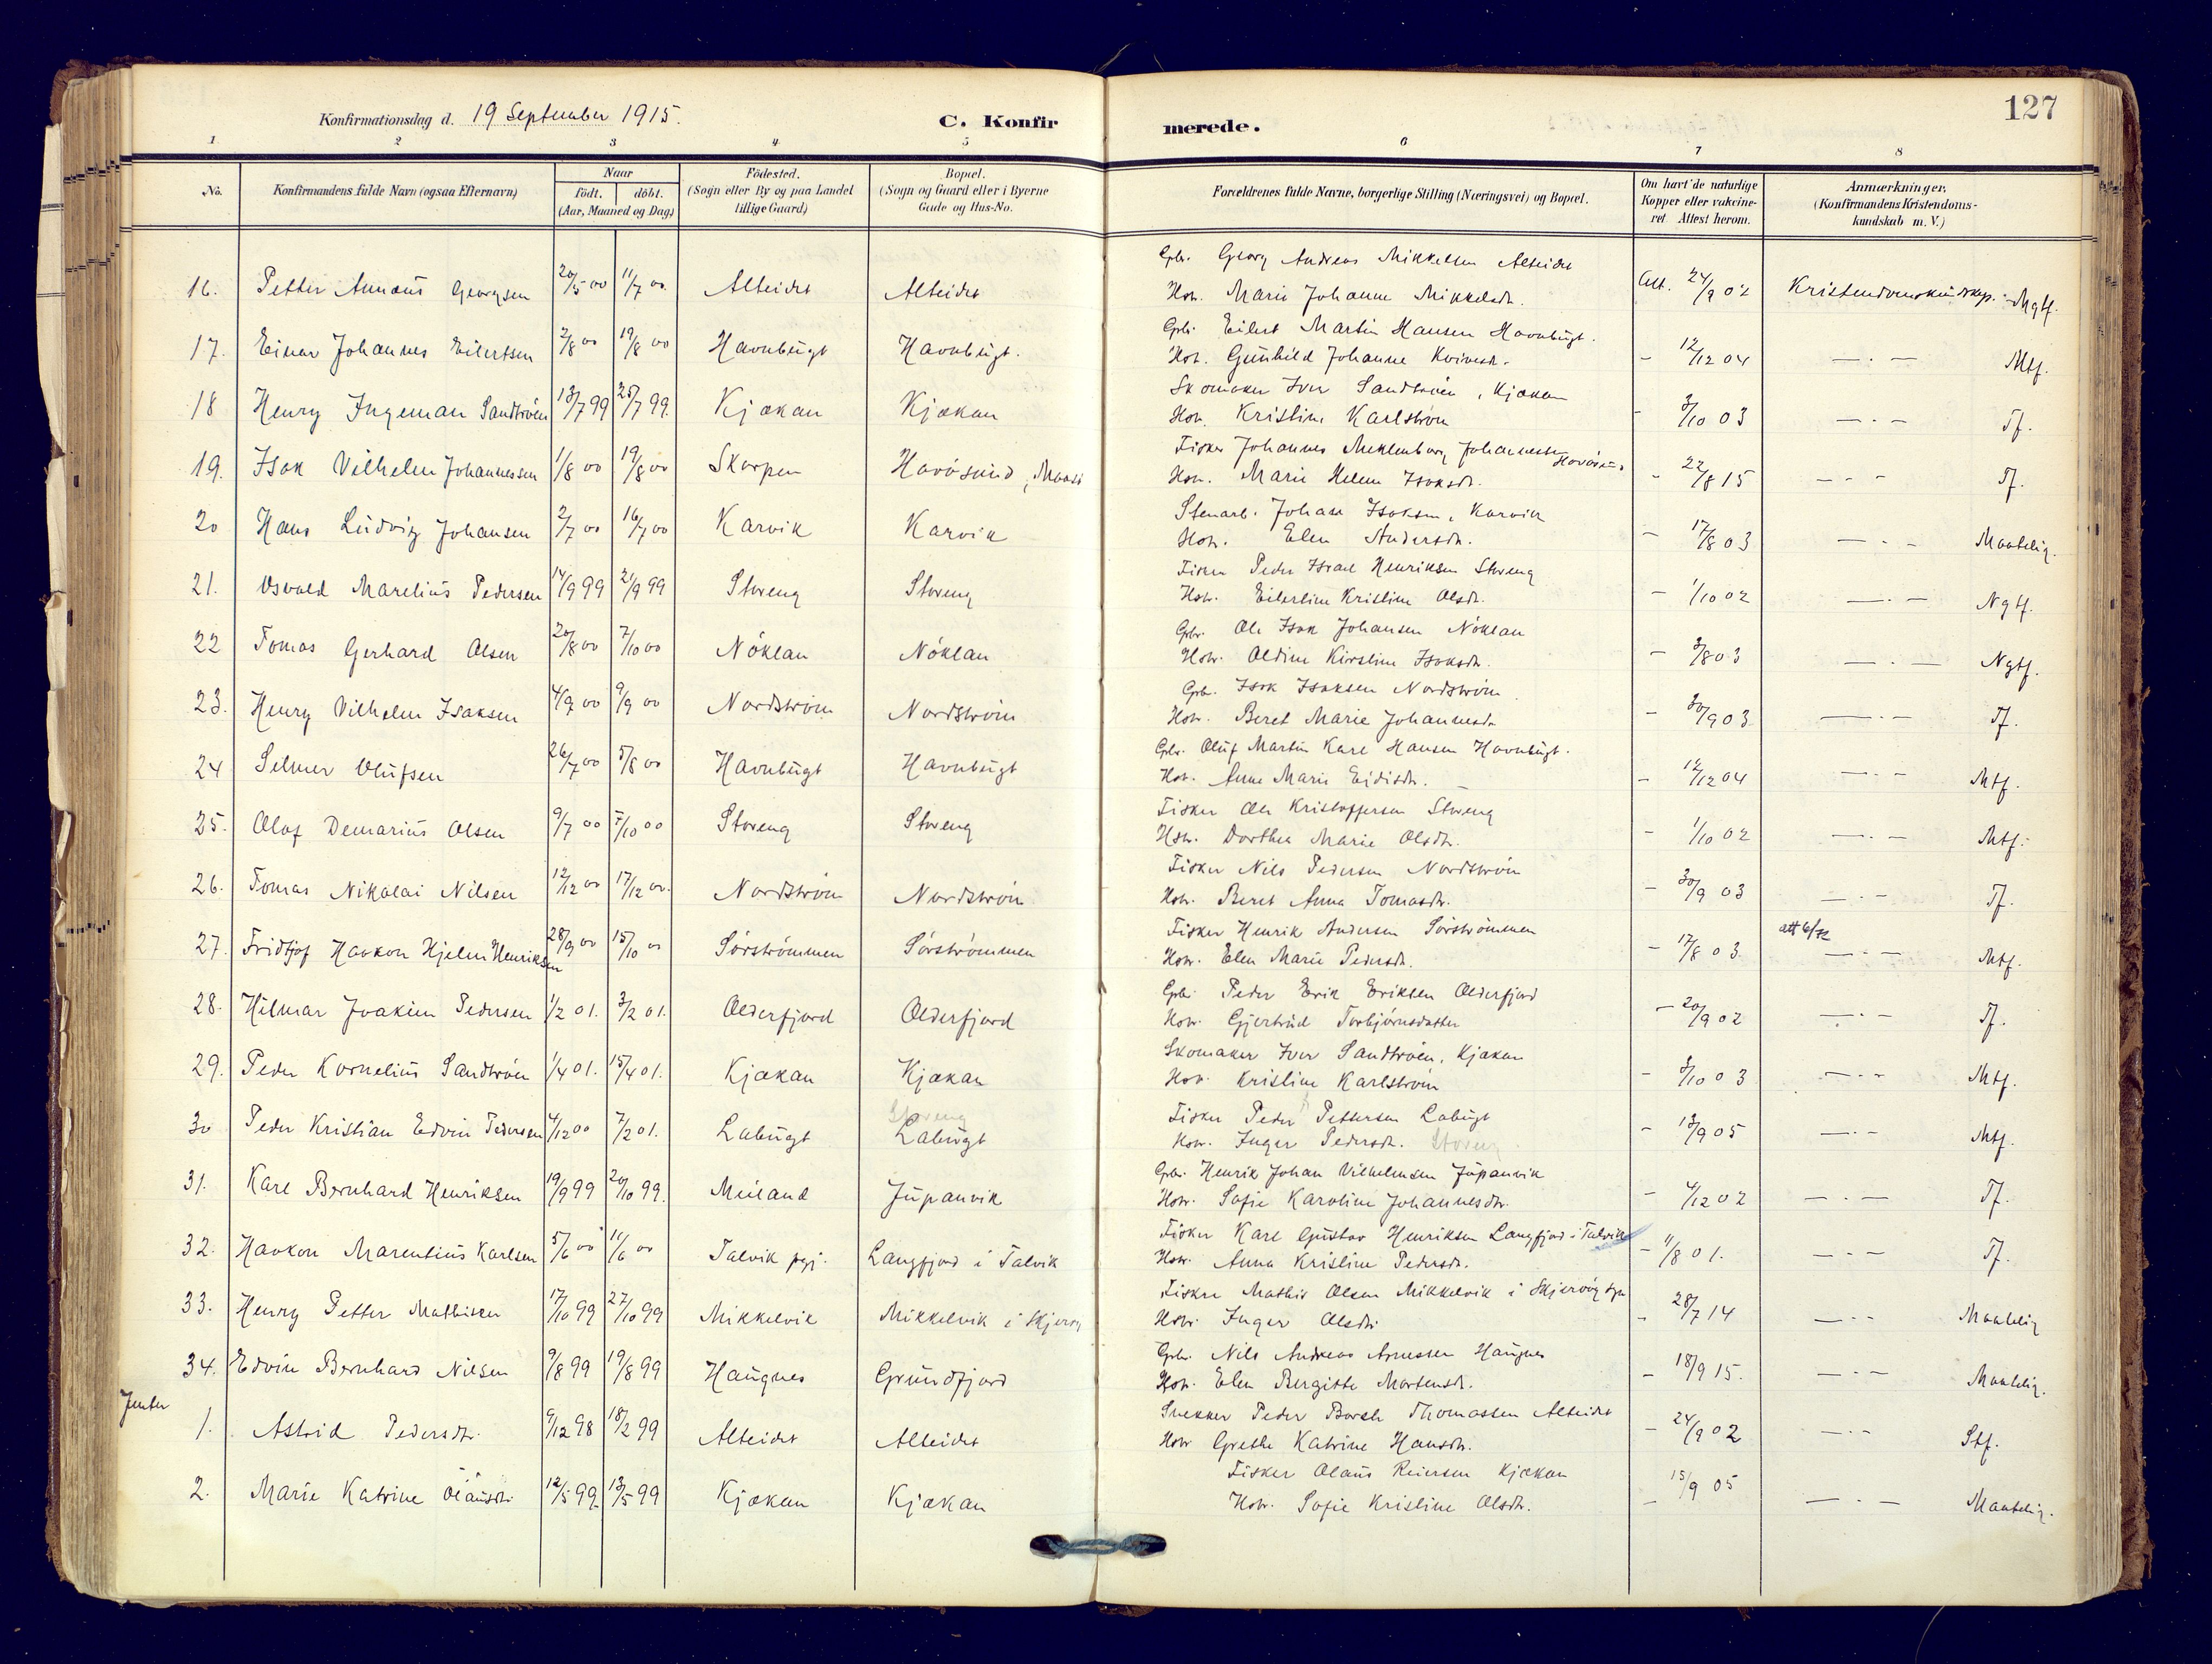 Konfirmationsdag d. 19 September 1915.
C. Konfirmerede.
127
1 2 3 4 5 6 7 8
No. Konfirmandens fulde Navn (ogsaa Efternavn) Naar födt. döbt. (Aar, Maaned og Dag) Födested. (Sogn eller By og paa Landet tillige Gaard) Bopæl. (Sogn og Gaard eller i Byerne Gade og Hus-No. Forældrenes fulde Navne, borgerlige Stilling (Næringsvei) og Bopæl. Om havt de naturlige Kopper eller vakcineret. Attest herom. Anmærkninger. (Konfirmandens Kristendomskundskab m. V.)
16. Petter Annæus Georgsen 20/5 00 11/7 00. Alteidet Alteidet Gbr. Georg Andreas Mikkelsen Alteidet
Hstr. Marie Johanne Mikkelsdr. Att. 24/9 02 Kristendomskundskap. - Mgtf.
17. Einar Johannes Eilertsen 2/8 00 19/8 00 Havnbugt Havnbugt. Gbr. Eilert Martin Hansen Havnbugt.
Hstr. Gunhild Johanne Kvivesdr. - 12/12 04 — . — Mtf.
18 Henry Ingeman Sandtrøen 13/7 99 25/7 99. Kjækan Kjækan Skomaker Iver Sandtrøen, Kjækan
Hstr. Kristine Karlstrøm - 3/10 03 — . — Tf.
19. Isak Vilhelm Johannessen 1/8 00 19/8 00 Skarpen Havøsund, Maasø Fisker Johannes Meklenborg Johannessen Havøsund
Hstr. Marie Helene Isaksdr. - 22/8 15 — - - Tf.
20 Hans Ludvig Johansen 2/7 00 16/7 00 Karvik Karvik Stenarb. Johan Isaksen, Karvik
Hstr. Elen Andersdr. - 17/8 03 — . - Maatelig.
21. Osvald Marelius Pedersen 14/9 99 21/9 99 Storeng Storeng Fisker Peder Israel Henriksen Storeng
Hstr. Eilertine Kristine Olsdr. - 1/10 02 — . — Ngtf.
22 Tomas Gerhard Olsen 20/8 00 7/10 00 Nøklan Nøklan Gbr. Ole Isak Johansen Nøklan
Hstr. Oldine Kirstine Isaksdr. - 3/8 03 — . — Ngtf.
23. Henry Vilhelm Isaksen 4/9 00 9/9 00 Nordstrøm Nordstrøm Gbr. Isak Isaksen Nordstrøm.
Hstr. Beret Marie Johannesdr. - 30/9 03 — . — Tf.
24 Selmer Olufsen 26/7 00 5/8 00 Havnbugt Havnbugt Gbr. Oluf Martin Karl Hansen Havnbugt.
Hstr. Anne Marie Eidisdr. - 12/12 04 — . — Mtf.
25. Olaf Demarius Olsen 9/7 00 7/10 00 Storeng Storeng Fisker Ole Kristoffersen Storeng
Hstr. Dorthea Marie Olsdtr. - 1/10 02 — . — Mtf.
26. Tomas Nikolai Nilsen 12/12 00 17/12 00. Nordstrøm Nordstrøm Fisker Nils Pedersen Nordstrøm
Hstr. Beret Anna Tomasdr. - 30/9 03 — . - Tf.
27. Fridtjof Haakon Hjelm Henriksen 28/9 00 15/10 00 Sørstrømmen Sørstrømmen Fisker Henrik Andersen Sørstrømmen
Hstr. Elen Marie Pedersdr. - 17/8 03. att 6/72 — . - Mtf.
28. Hilmar Joakim Pedersen 1/2 01. 3/2 01. Olderfjord Olderfjord Gbr. Peder Erik Eriksen Olderfjord
Hstr. Gjertrud Torbjørnsdatter - 20/9 02 — . - Tf.
29. Peder Kornelius Sandtrøen 1/4 01. 15/4 01. Kjækan Kjækan Skomaker Iver Sandtrøen, Kjækan
Hstr. Kristine Karlstrøm - 3/10 03 — . - Mtf.
30 Peder Kristian Edvin Pedersen 4/12 00 7/2 01. Labugt Storeng Labugt Fisker Peder Pettersen Labugt
Hstr. Inger Pedersdr. Storeng - 13/9 05 — . - Mtf.
31. Karl Bernhard Henriksen 19/9 99 20/10 99. Meiland Jupanvik Gbr. Henrik Johan Vilhelmsen Jupanvik
Hstr. Sofie Karoline Johannesdr. - 4/12 02 — . — Tf.
32. Haakon Marentius Karlsen 5/6 00 11/6 00 Talvik pgj. Langfjord i Talvik Fisker Karl Gustav Henriksen Langfjord i Talvik
Hstr. Anna Kristine Pedersdr. - 11/8 01. — . - Tf.
33. Henry Petter Mathisen 17/10 99 27/10 99 Mikkelvik Mikkelvik i Skjervøy Fisker Mathis Olsen Mikkelvik i Skjervøy sgn
Hstr. Inger Olsdtr. - 28/7 14 — . - Maatelig
34. Edvin Bernhard Nilsen 9/8 99 19/8 99 Haugnes Grundfjord Gbr. Nils Andreas Arnessen Haugnes
Hstr. Elen Bergitte Mortensdr. - 18/9 15. — . - Maatelig.
Jenter
1. Astrid Pedersdtr. 9/12 98 18/2 99 Alteidet Alteidet Snekker Peder Borch Thomassen Alteidet
Hstr Grethe Katrine Hansdtr. - 24/9 02 — . - Stf.
2. Marie Katrine Olausdtr 12/5 99. 13/5 99 Kjækan Kjækan Fisker Olaus Reiersen Kjækan
Hstr. Sofie Kristine Olsdtr. - 15/9 05 — . — Maatelig.